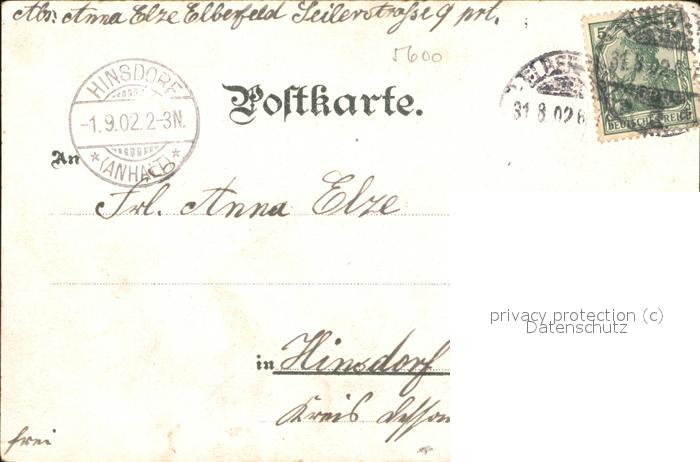 Abs: Anna Elze Elberfeld Seilerstraße 9 prt.
5600
HINSDORF
-1.9.02.2-3N.
(ANHALT)
Postkarte.
ELBER
31.8.02 6
31.8.02
5
DEUTSCHES REICH
An
Frl. Anna Elze
privacy protection (c)
Datenschutz
in Hinsdorf
Kreis Dessau
frei